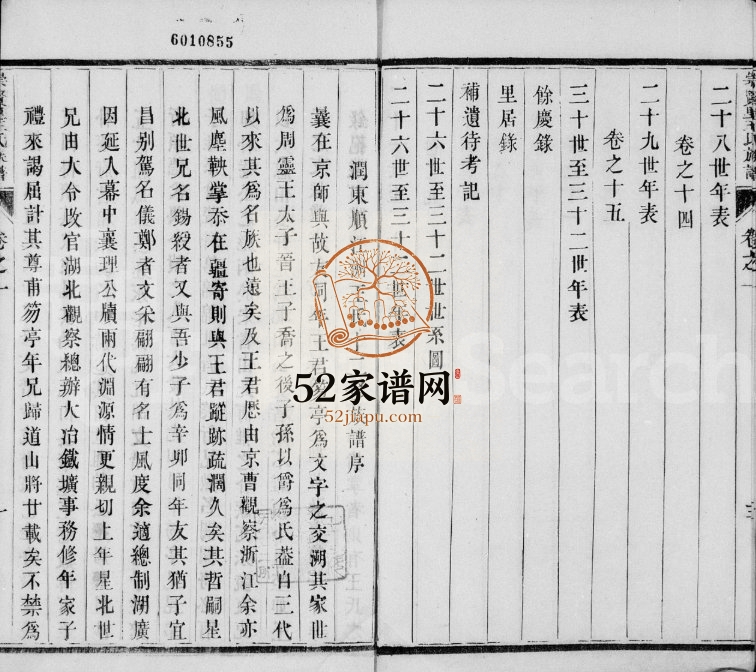 6010855
二十八世年表
卷之十四
二十九世年表
卷之十五
三十世至三十二世年表
餘慶錄
里居錄
補遺待考記
二十六世至三十二世世系圖
二十六世至三十二世年表
潤東順江
譜序
曩在京師與故
同年王君
亭爲文字之交溯其家世
爲周靈王太子晉王子喬之後子孫以爵爲氏蓋自三代
以來其爲名族也遠矣及王君歷由京曹觀察浙江余亦
風塵鞅掌忝在疆寄則與王君蹤跡疏濶久矣其哲嗣星
北世兄名錫殺者又與吾少子爲辛卯同年友其猶子宜
昌别駕名儀鄭者文采翩翩有名士風度余適總制湖廣
因延入幕中襄理公牘兩代淵源情更親切上年星北世
兄由大令改官湖北觀察總辦大冶鐵壙事務修年家子
禮來謁屈計其尊甫笏亭年兄歸道山將廿載矣不禁爲
卷之一
52家谱网
52jiapu.com